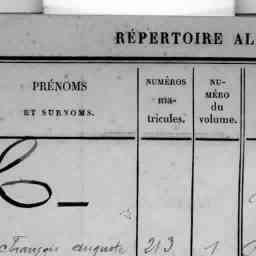 RÉPERTOIRE AL
PRÉNOMS
ET SURNOMS.
NUMÉROS
ma-
tricules.
NU-
MÉRO
du
volume.
François auguste 213 1